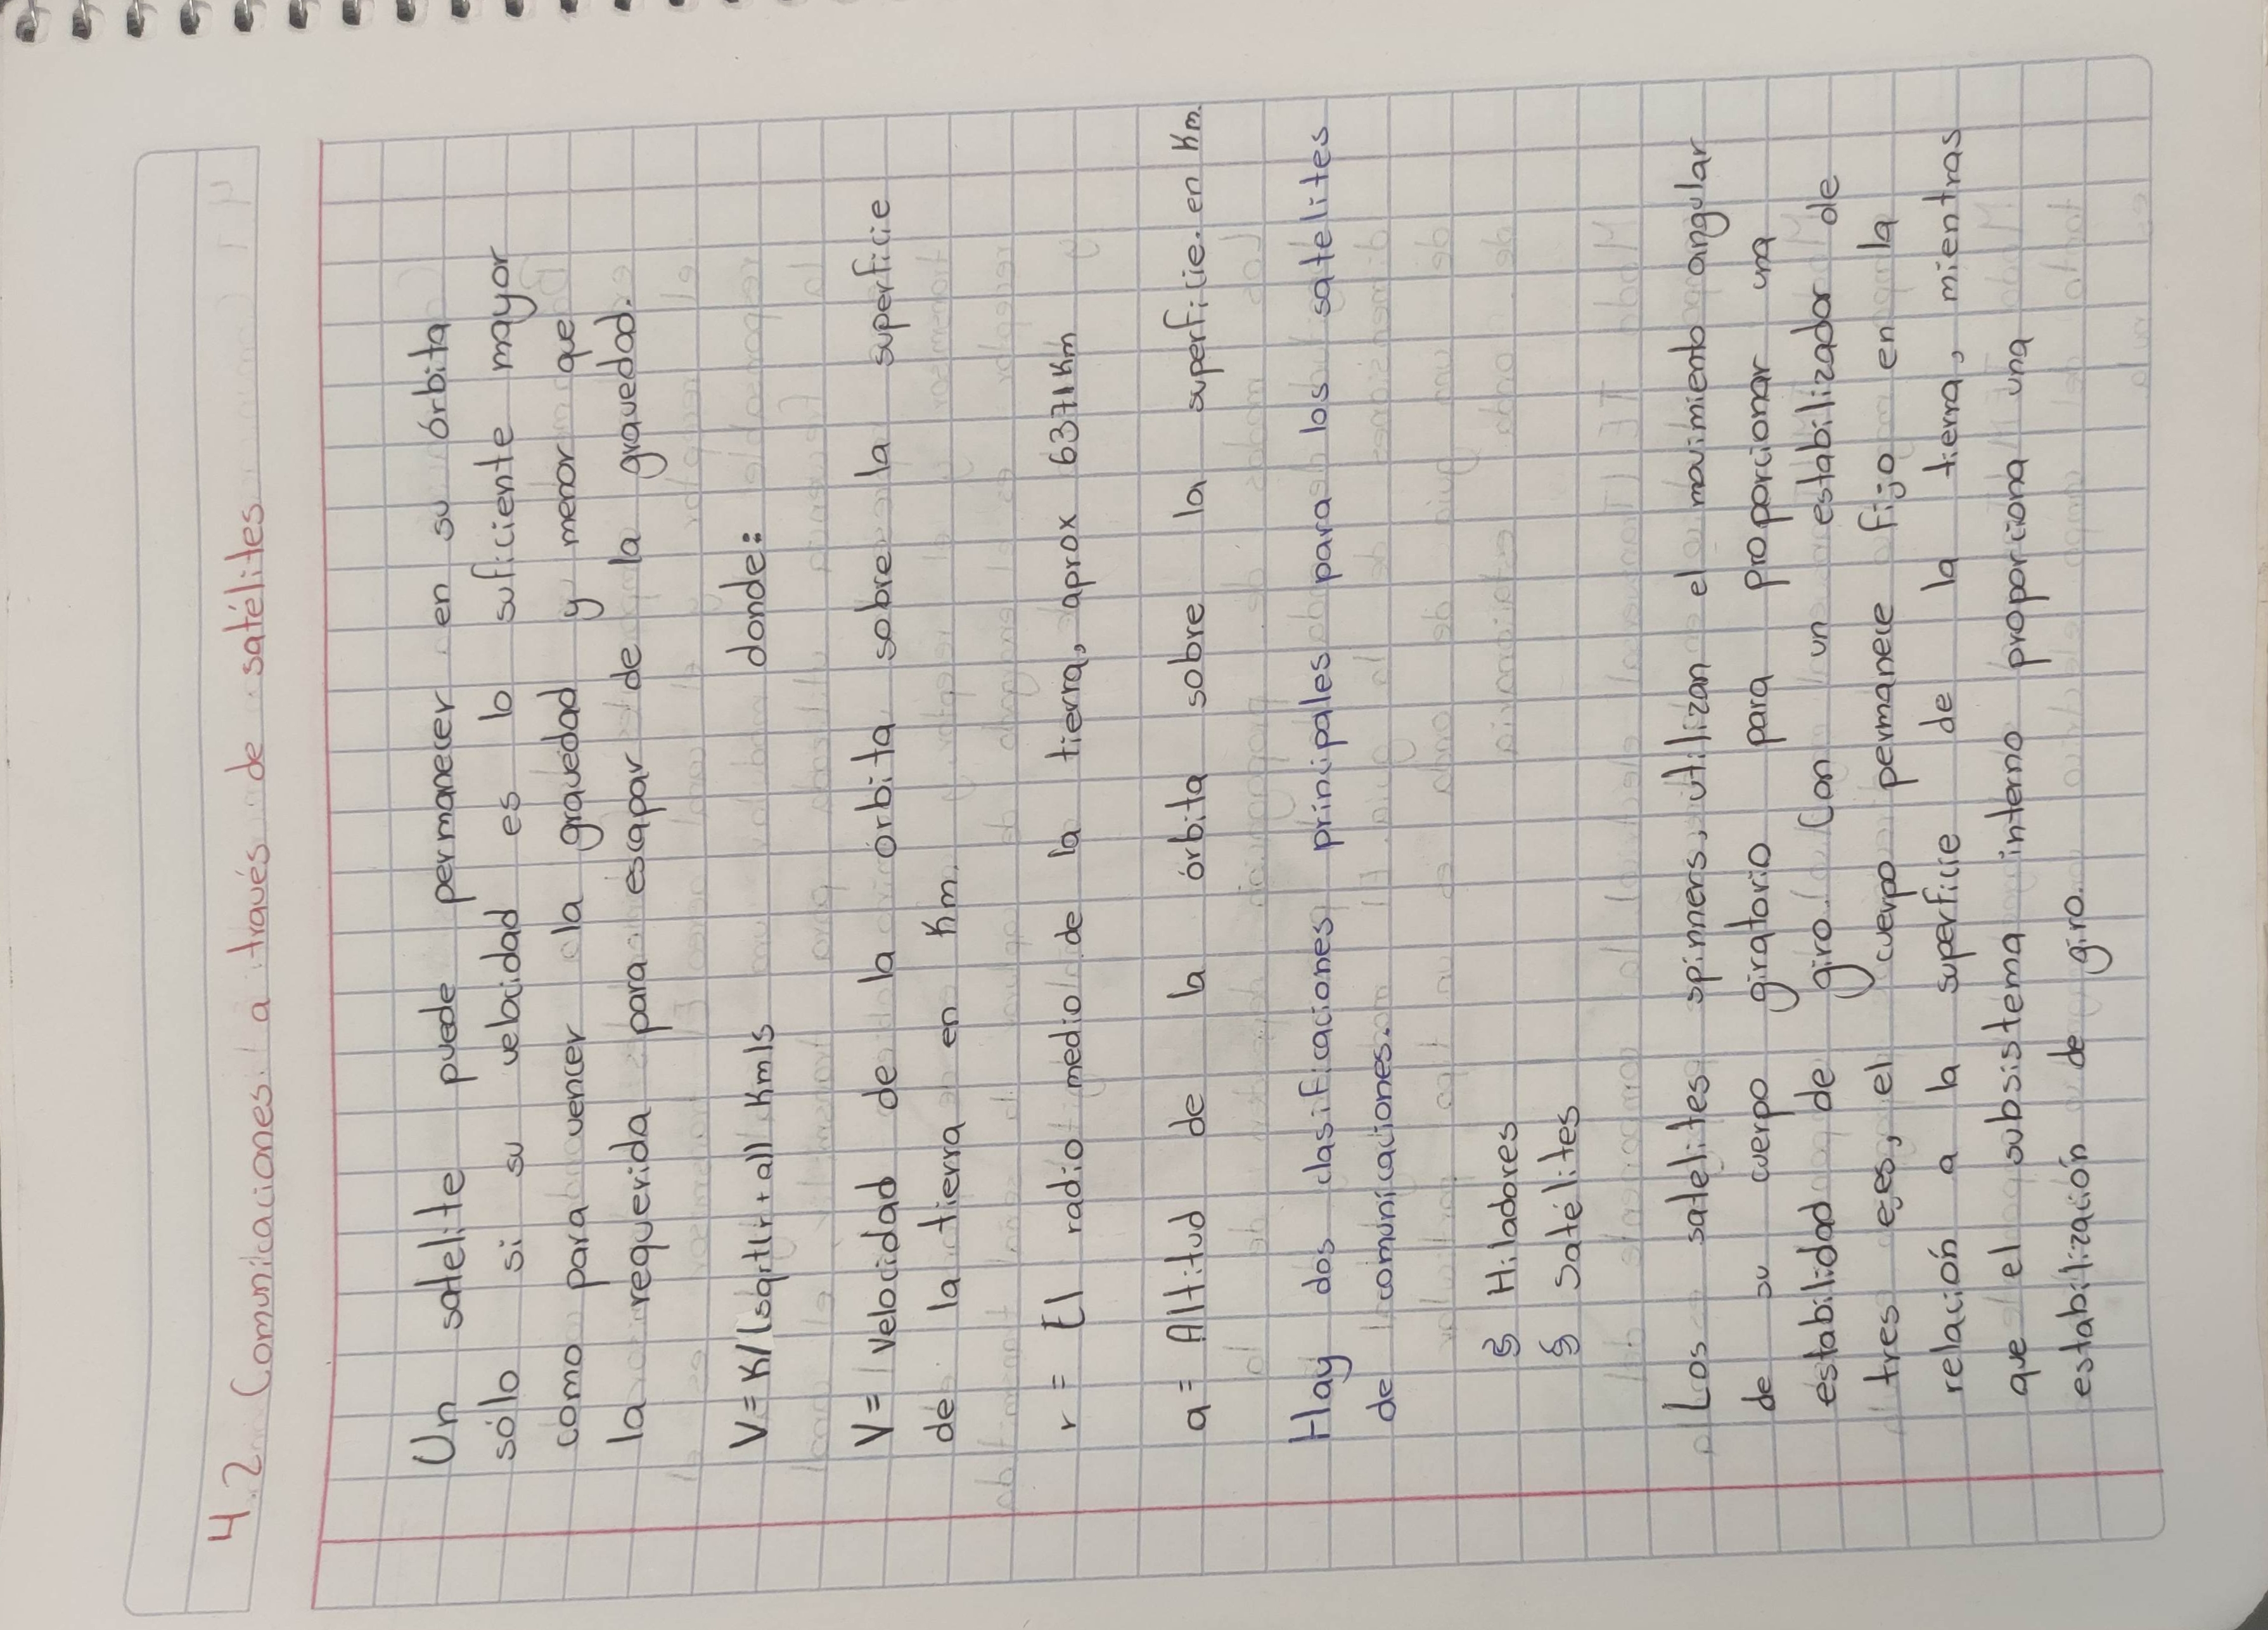 4.2 Comunicaciones a través de satélites
Un satelite puede permanecer en su órbita
sólo si su velocidad es lo suficiente mayor
como para vencer la gravedad y menor que
la requerida para escapar de la gravedad.
V= K/(sqrt(r + a)) Km/s donde:
V= Velocidad de la órbita sobre la superficie
de la tierra en Km.
r = El radio medio de la tierra, aprox 6371 Km
a = Altitud de la órbita sobre la superficie. en Km.
Hay dos clasificaciones principales para los satelites
de comunicaciones.
§ Hiladores
§ Satélites
Los satelites spinners, utilizan el movimiento angular
de su cuerpo giratorio para proporcionar una
estabilidad de giro. Con un estabilizador de
tres ejes, el cuerpo permanece fijo en la
relación a la superficie de la tierra, mientras
que el subsistema interno proporciona una
estabilización de giro.